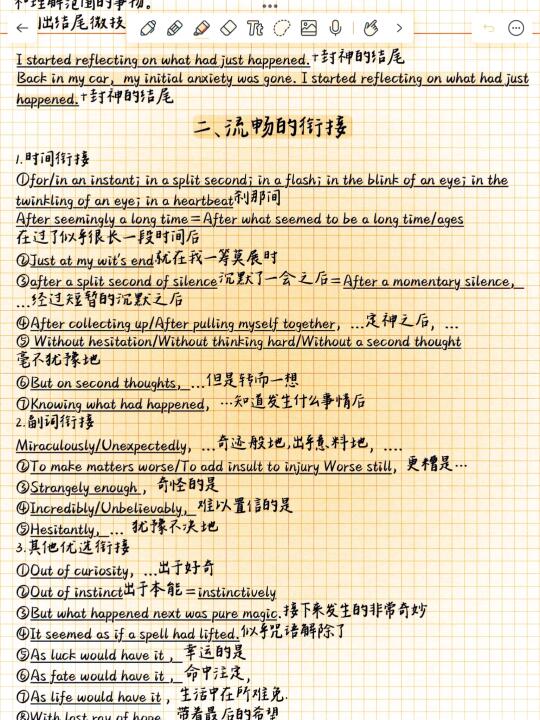 和理解范围的事物。
出结尾微技
I started reflecting on what had just happened.+封神的结尾
Back in my car, my initial anxiety was gone. I started reflecting on what had just
happened.+封神的结尾
二、流畅的衔接
1.时间衔接
①for/in an instant; in a split second; in a flash; in the blink of an eye; in the
twinkling of an eye; in a heartbeat刹那间
After seemingly a long time=After what seemed to be a long time/ages
在过了似乎很长一段时间后
②Just at my wit's end就在我一筹莫展时
③after a split second of silence沉默了一会之后=After a momentary silence,
...经过短暂的沉默之后
④After collecting up/After pulling myself together, ...定神之后, ...
⑤ Without hesitation/Without thinking hard/Without a second thought
毫不犹豫地
⑥But on second thoughts, ...但是转而一想
⑦Knowing what had happened, ...知道发生什么事情后
2.副词衔接
Miraculously/Unexpectedly, ...奇迹般地,出乎意料地, ....
②To make matters worse/To add insult to injury Worse still, 更糟是...
③Strangely enough, 奇怪的是
④Incredibly/Unbelievably, 难以置信的是
⑤Hesitantly, ... 犹豫不决地
3.其他优选衔接
①Out of curiosity, ...出于好奇
②Out of instinct出于本能=instinctively
③But what happened next was pure magic.接下来发生的非常奇妙
④It seemed as if a spell had lifted.似乎咒语解除了
⑤As luck would have it, 幸运的是
⑥As fate would have it, 命中注定,
⑦As life would have it, 生活中在所难免.
⑧With last ray of hope, 带着最后的希望